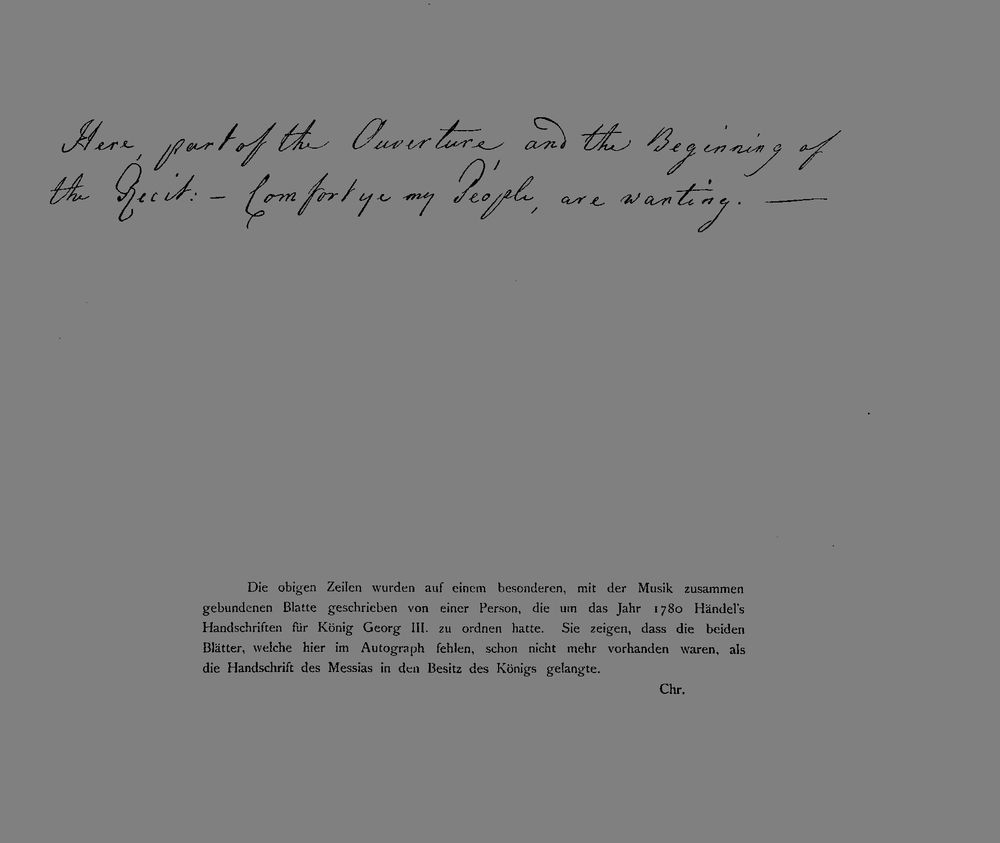 Here, part of the Ouverture and the Beginning of
the Recit: – Comfort ye my People, are wanting. —
Die obigen Zeilen wurden auf einem besonderen, mit der Musik zusammen
gebundenen Blatte geschrieben von einer Person, die um das Jahr 1780 Händel's
Handschriften für König Georg III. zu ordnen hatte. Sie zeigen, dass die beiden
Blätter, welche hier im Autograph fehlen, schon nicht mehr vorhanden waren, als
die Handschrift des Messias in den Besitz des Königs gelangte.
Chr.